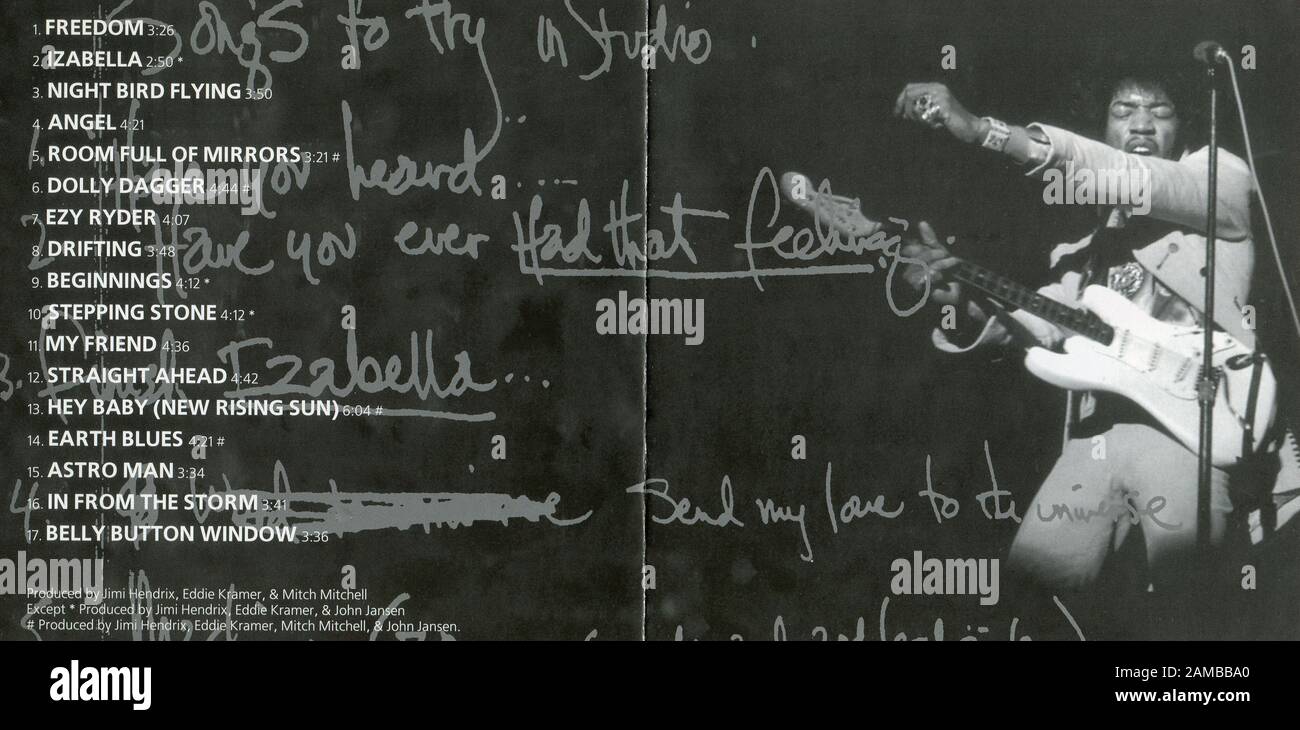 1. FREEDOM 3:26
2. IZABELLA 2:50 *
3. NIGHT BIRD FLYING 3:50
4. ANGEL 4:21
5. ROOM FULL OF MIRRORS 3:21 #
6. DOLLY DAGGER 4:44 #
7. EZY RYDER 4:07
8. DRIFTING 3:48
9. BEGINNINGS 4:12 *
10. STEPPING STONE 4:12 *
11. MY FRIEND 4:36
12. STRAIGHT AHEAD 4:42
13. HEY BABY (NEW RISING SUN) 6:04 #
14. EARTH BLUES 4:21 #
15. ASTRO MAN 3:34
16. IN FROM THE STORM 3:41
17. BELLY BUTTON WINDOW 3:36
Produced by Jimi Hendrix, Eddie Kramer, & Mitch Mitchell
Except * Produced by Jimi Hendrix, Eddie Kramer, & John Jansen
# Produced by Jimi Hendrix, Eddie Kramer, Mitch Mitchell, & John Jansen.
Songs to try in Studio .
Have you heard ...
2. Have you ever Had that feeling
3. Finish Izabella ...
4. Send my love to the universe
alamy
alamy
alamy
alamy
alamy
alamy
Image ID: 2AMBBA0
www.alamy.com